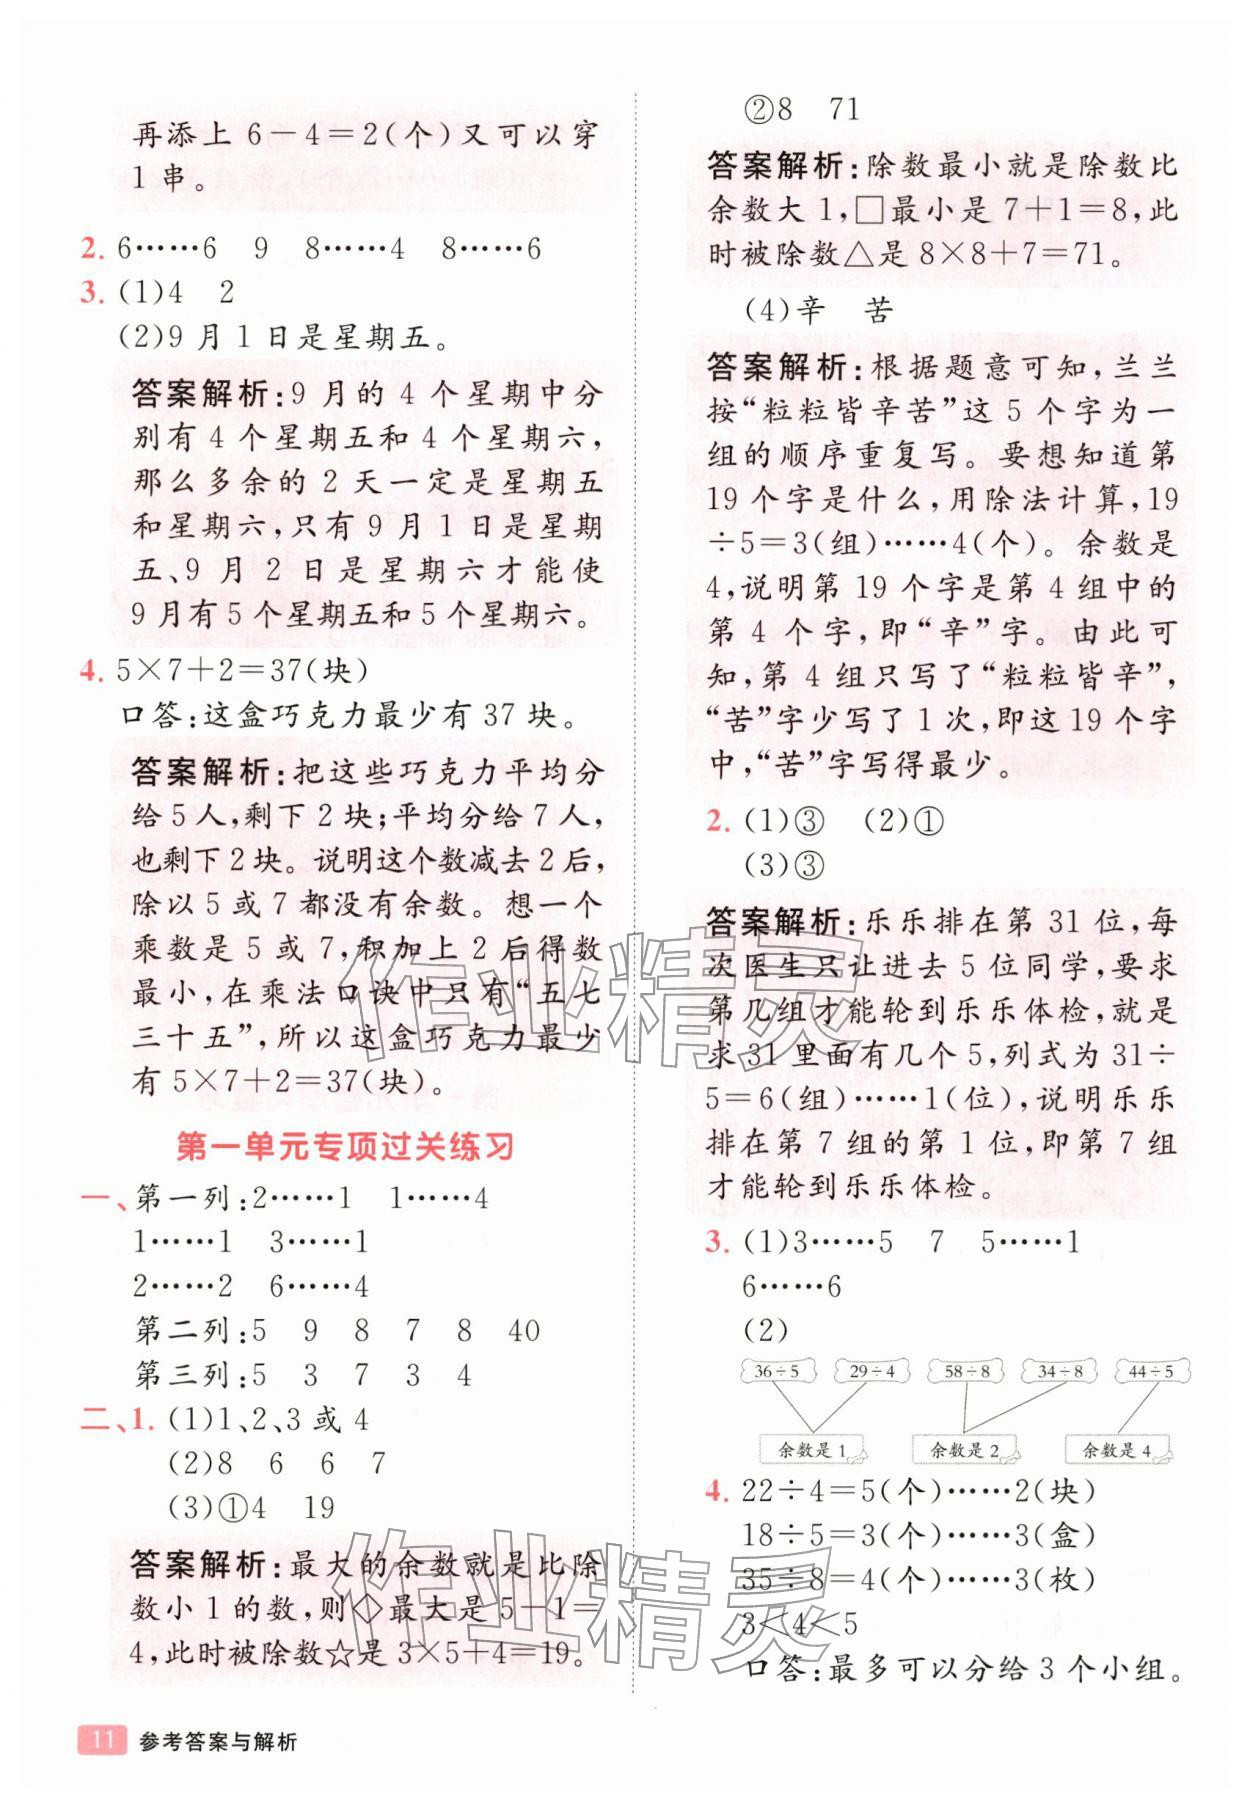 再添上 6－4＝2(个)又可以穿
1 串。
2. 6……6　9　8……4　8……6
3. (1)4　2
(2)9 月 1 日是星期五。
答案解析:9 月的 4 个星期中分
别有 4 个星期五和 4 个星期六，
那么多余的 2 天一定是星期五
和星期六，只有 9 月 1 日是星期
五、9 月 2 日是星期六才能使
9 月有 5 个星期五和 5 个星期六。
4. 5×7＋2＝37(块)
口答:这盒巧克力最少有 37 块。
答案解析:把这些巧克力平均分
给 5 人,剩下 2 块;平均分给 7 人,
也剩下 2 块。说明这个数减去 2 后,
除以 5 或 7 都没有余数。想一个
乘数是 5 或 7,积加上 2 后得数
最小,在乘法口诀中只有“五七
三十五”,所以这盒巧克力最少
有 5×7＋2＝37(块)。
第一单元专项过关练习
一、第一列:2……1　1……4
1……1　3……1
2……2　6……4
第二列:5　9　8　7　8　40
第三列:5　3　7　3　4
二、1. (1)1、2、3 或 4
(2)8　6　6　7
(3)①4　19
答案解析:最大的余数就是比除
数小 1 的数,则◇最大是 5－1＝
4,此时被除数☆是 3×5＋4＝19。
②8　71
答案解析:除数最小就是除数比
余数大 1,□最小是 7＋1＝8,此
时被除数△是 8×8＋7＝71。
(4)辛　苦
答案解析:根据题意可知,兰兰
按“粒粒皆辛苦”这 5 个字为一
组的顺序重复写。要想知道第
19 个字是什么,用除法计算,19
÷5＝3(组)……4(个)。余数是
4,说明第 19 个字是第 4 组中的
第 4 个字,即“辛”字。由此可
知,第 4 组只写了“粒粒皆辛”,
“苦”字少写了 1 次,即这 19 个字
中,“苦”字写得最少。
2. (1)③　(2)①
(3)③
答案解析:乐乐排在第 31 位,每
次医生只让进去 5 位同学,要求
第几组才能轮到乐乐体检,就是
求 31 里面有几个 5,列式为 31÷
5＝6(组)……1(位),说明乐乐
排在第 7 组的第 1 位,即第 7 组
才能轮到乐乐体检。
3. (1)3……5　7　5……1
6……6
(2)
36÷5　29÷4　58÷8　34÷8　44÷5
余数是 1　余数是 2　余数是 4
4. 22÷4＝5(个)……2(块)
18÷5＝3(个)……3(盒)
35÷8＝4(个)……3(枚)
3＜4＜5
口答:最多可以分给 3 个小组。
11 参考答案与解析
作业精灵
作业精灵